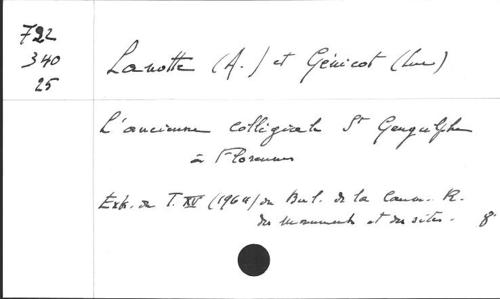 722
340
25
Lanotte (A.) et Génicot (Luc)
L'ancienne collégiale St Gengulphe
à Florennes
Extr. du T. XV (1964) du Bul. de la Comm. R.
des monuments et des sites. 8°